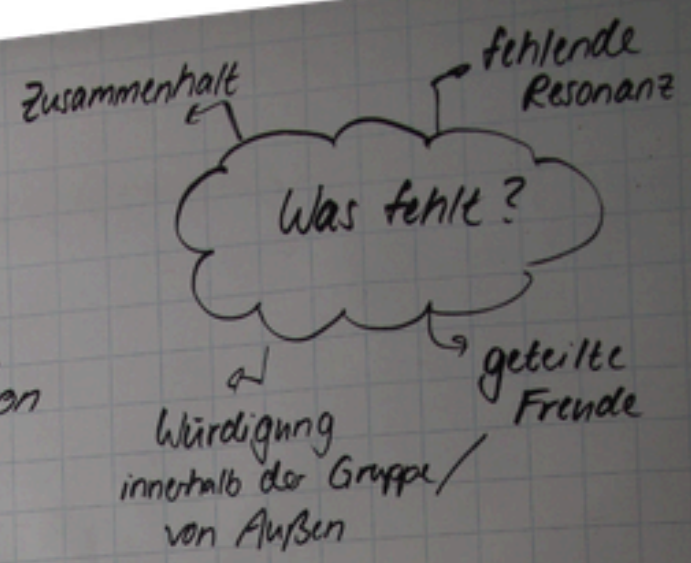 Zusammenhalt
fehlende
Resonanz
Was fehlt?
geteilte
Freude
Würdigung
innerhalb der Gruppe/
von Außen